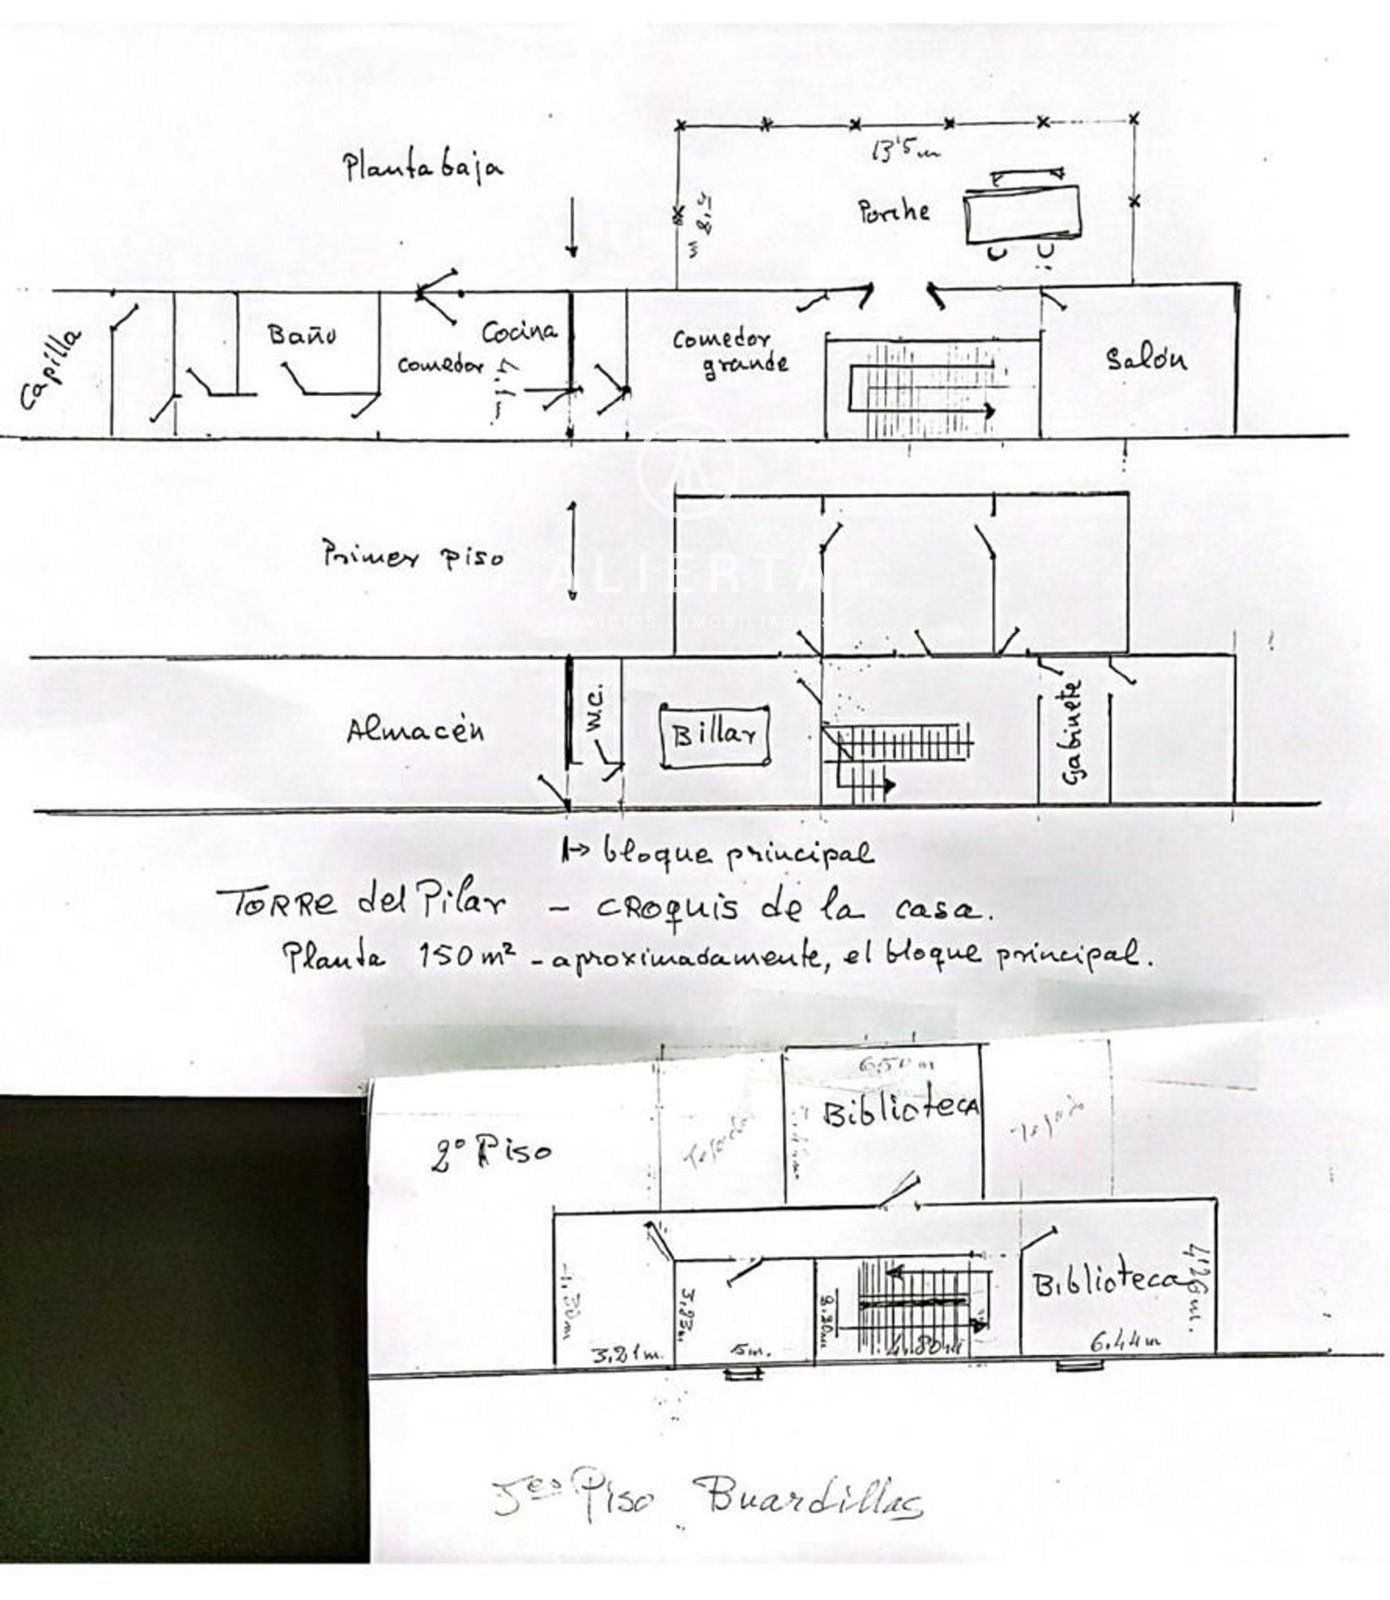 Planta baja
13'5m
Porche
Capilla
Baño
Comedor
Cocina
Comedor
grande
Salón
Primer piso
ALIERTA
SERVICIOS INMOBILIARIOS
Almacén
W.C.
Billar
Gabinete
bloque principal
TORRE del Pilar - CROQUIS de la casa.
Planta 150 m² - aproximadamente, el bloque principal.
6,50 m
Biblioteca
Tejado
Tejado
2º Piso
Biblioteca
4'26 m.
3,21m.
5m.
4,80m
6,44m
Piso Buardillas